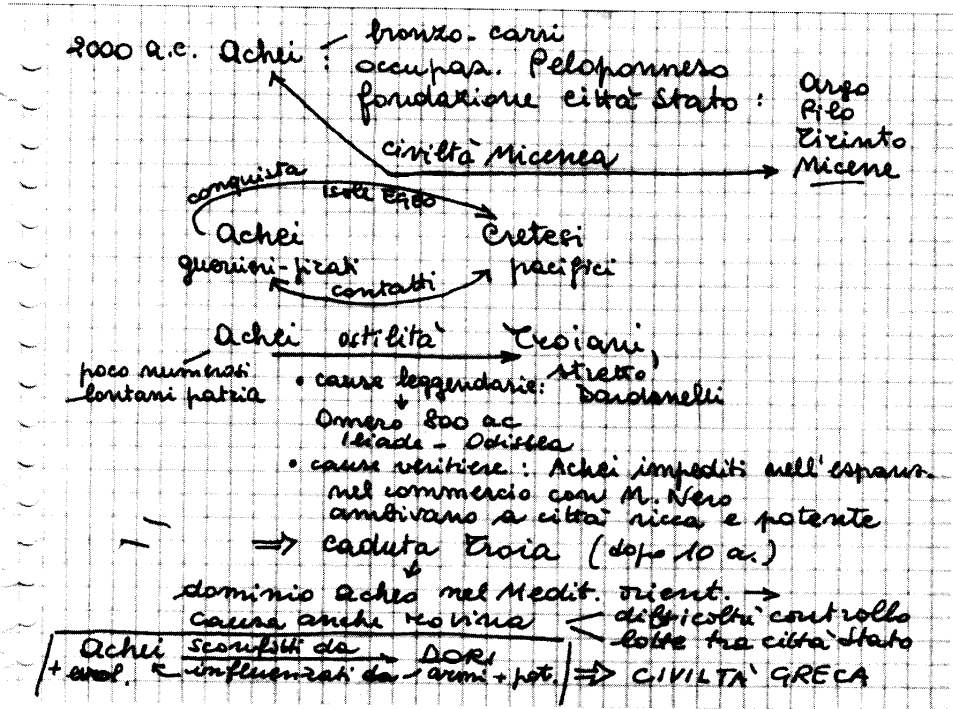 2000 a.c. Achei bronzo - carri
occupaz. Peloponneso
fondazione città Stato : Argo
Pilo
Tirinto
Micene
civiltà Micenea
conquista isole EGEO
Achei Cretesi
guerrieri-pirati pacifici
contatti
Achei ostilità Troiani,
poco numerosi stretto
lontani patria Dardanelli
• cause leggendarie:
Omero 800 ac
Iliade - Odissea
• cause veritiere : Achei impediti nell'espans.
nel commercio con M. Nero
ambivano a città ricca e potente
⇒ caduta Troia (dopo 10 a.)
dominio acheo nel Medit. orient. →
causa anche rovina difficoltà controllo
lotte tra città Stato
Achei sconfitti da DORI
+ evol. influenzati da - armi + pot. ⇒ CIVILTÀ GRECA